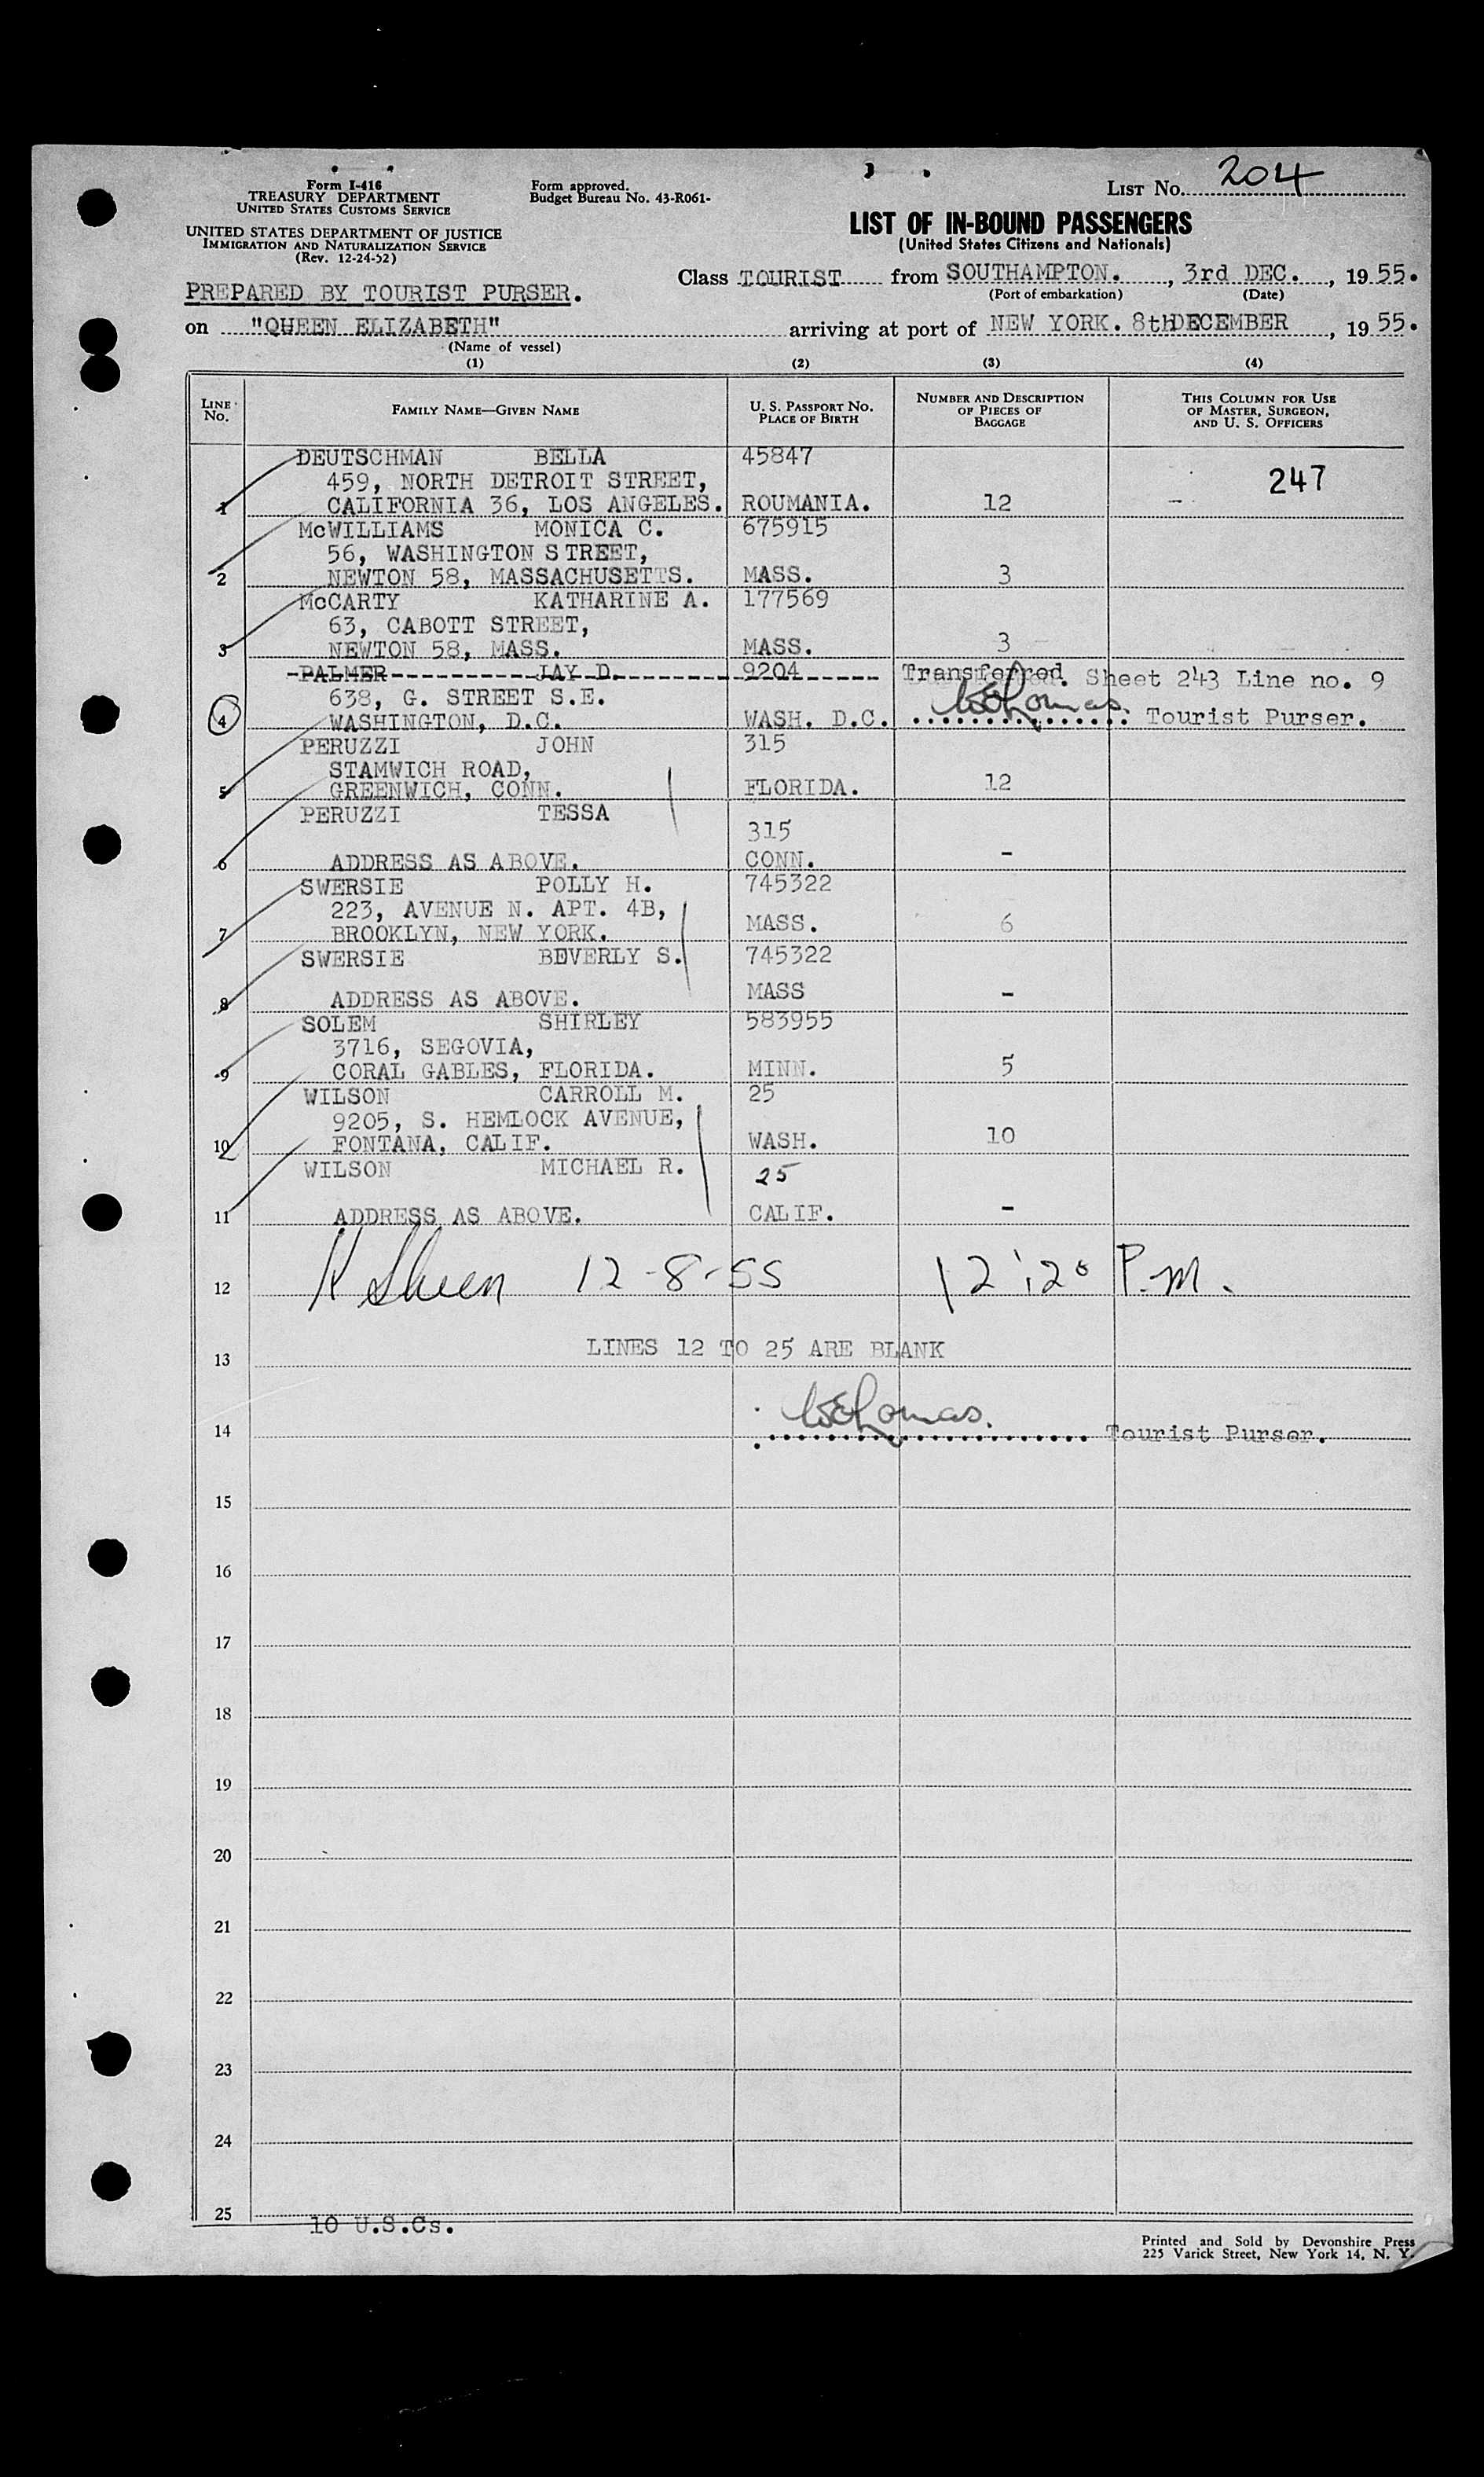 Form I-416
TREASURY DEPARTMENT
UNITED STATES CUSTOMS SERVICE
UNITED STATES DEPARTMENT OF JUSTICE
IMMIGRATION AND NATURALIZATION SERVICE
(Rev. 12-24-52)
Form approved.
Budget Bureau No. 43-R061-
LIST NO. 204
LIST OF IN-BOUND PASSENGERS
(United States Citizens and Nationals)
Class TOURIST from SOUTHAMPTON. , 3rd DEC. , 1955.
(Port of embarkation) (Date)
PREPARED BY TOURIST PURSER.
on "QUEEN ELIZABETH" arriving at port of NEW YORK. 8thDECEMBER , 1955.
(Name of vessel)
(1) (2) (3) (4)
LINE NO. FAMILY NAME—GIVEN NAME U. S. PASSPORT NO. PLACE OF BIRTH NUMBER AND DESCRIPTION OF PIECES OF BAGGAGE THIS COLUMN FOR USE OF MASTER, SURGEON, AND U. S. OFFICERS
DEUTSCHMAN BELLA 45847
459, NORTH DETROIT STREET, 247
1 CALIFORNIA 36, LOS ANGELES. ROUMANIA. 12 -
McWILLIAMS MONICA C. 675915
56, WASHINGTON STREET,
2 NEWTON 58, MASSACHUSETTS. MASS. 3
McCARTY KATHARINE A. 177569
63, CABOTT STREET,
3 NEWTON 58, MASS. MASS. 3
PALMER JAY D. 9204 Transferred. Sheet 243 Line no. 9
638, G. STREET S.E.
4 WASHINGTON, D.C. WASH. D.C. WEThomas. Tourist Purser.
PERUZZI JOHN 315
STAMWICH ROAD,
5 GREENWICH, CONN. FLORIDA. 12
PERUZZI TESSA
315
6 ADDRESS AS ABOVE. CONN. -
SWERSIE POLLY H. 745322
223, AVENUE N. APT. 4B,
7 BROOKLYN, NEW YORK. MASS. 6
SWERSIE BEVERLY S. 745322
8 ADDRESS AS ABOVE. MASS -
SOLEM SHIRLEY 583955
3716, SEGOVIA,
9 CORAL GABLES, FLORIDA. MINN. 5
WILSON CARROLL M. 25
9205, S. HEMLOCK AVENUE,
10 FONTANA, CALIF. WASH. 10
WILSON MICHAEL R. 25
11 ADDRESS AS ABOVE. CALIF. -
12 K Sheen 12-8-55 12:20 P.M.
13 LINES 12 TO 25 ARE BLANK
14 WEThomas. Tourist Purser.
15
16
17
18
19
20
21
22
23
24
25
10 U.S.Cs.
Printed and Sold by Devonshire Press
225 Varick Street, New York 14, N. Y.